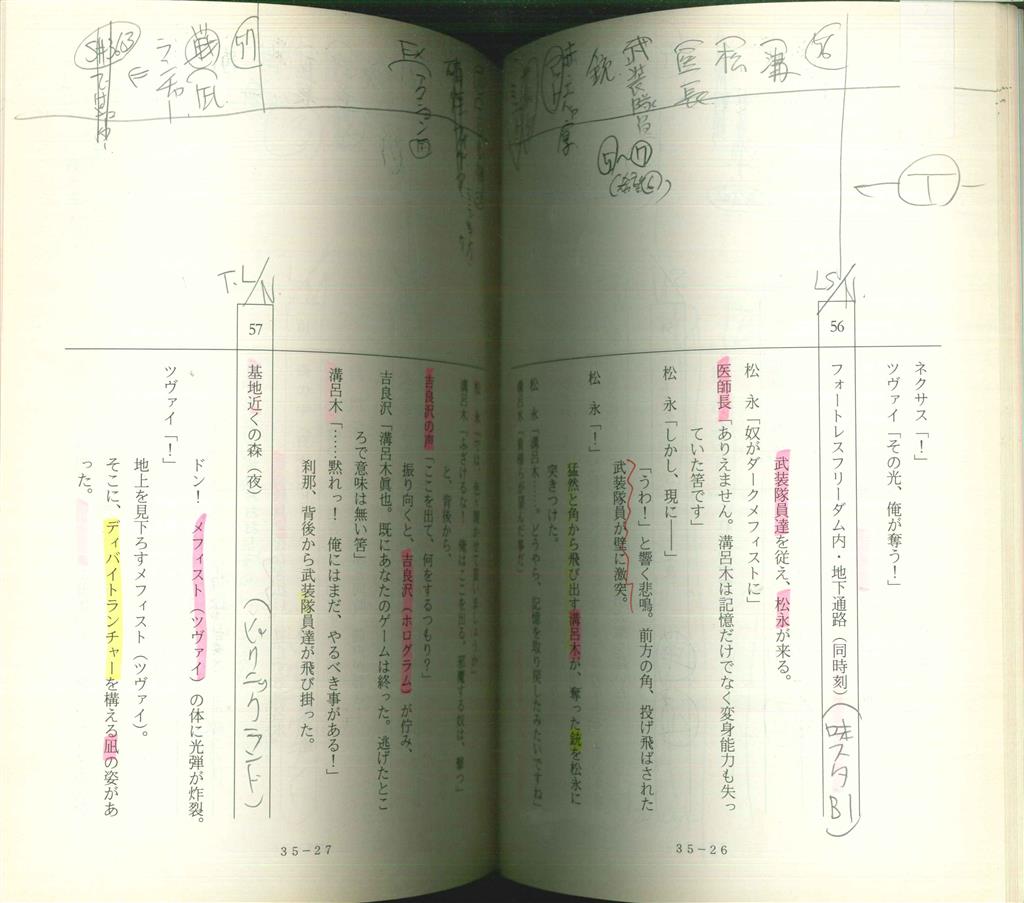 56
溝
松
医長
武装隊員
⑤〜⑦
銃
T
LS/N.
56
フォートレスフリーダム内・地下通路（同時刻）
（味スタB1）
ネクサス「！」
ツヴァイ「その光、俺が奪う！」
武装隊員達を従え、松永が来る。
松　永「奴がダークメフィストに」
医師長「ありえません。溝呂木は記憶だけでなく変身能力も失っ
ていた筈です」
松　永「しかし、現に――」
「うわ！」と響く悲鳴。前方の角、投げ飛ばされた
武装隊員が壁に激突。
松　永「！」
猛然と角から飛び出す溝呂木が、奪った銃を松永に
突きつけた。
松　永「溝呂木……。どうやら、記憶を取り戻したみたいですね」
溝呂木「貴様らが望んだ事だ」
35－26
松　永「では、色々聞かせて貰いましょうか」
溝呂木「ふざけるな！　俺はここを出る。邪魔する奴は、撃つ」
と、背後から、
吉良沢の声「ここを出て、何をするつもり？」
振り向くと、吉良沢（ホログラム）が佇み、
吉良沢「溝呂木眞也。既にあなたのゲームは終った。逃げたとこ
ろで意味は無い筈」
溝呂木「……黙れっ！　俺にはまだ、やるべき事がある！」
刹那、背後から武装隊員達が飛び掛った。
57
凪
ランチャー
T.L/N.
57
基地近くの森（夜）
（ピクニックランド）
ドン！　メフィスト（ツヴァイ）の体に光弾が炸裂。
ツヴァイ「！」
地上を見下ろすメフィスト（ツヴァイ）。
そこに、ディバイトランチャーを構える凪の姿があ
った。
35－27